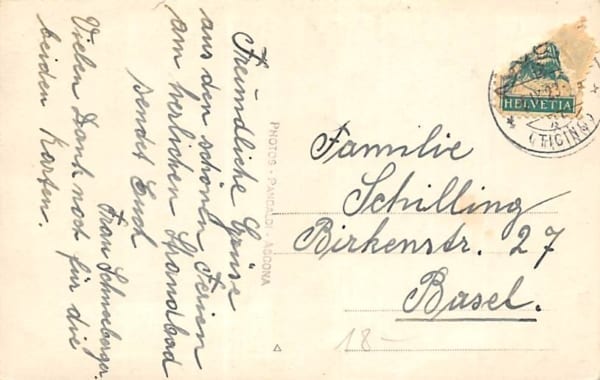 Freundliche Grüsse
aus den schönen Ferien
am herlichen Strandbad
sendet Euch
Frau Schneeberger.
Vielen Dank noch für die
beiden Karten.
PHOTOS - PANCALDI - ASCONA
HELVETIA
(TICINO)
Familie
Schilling
Birkenstr. 27
Basel.
18-